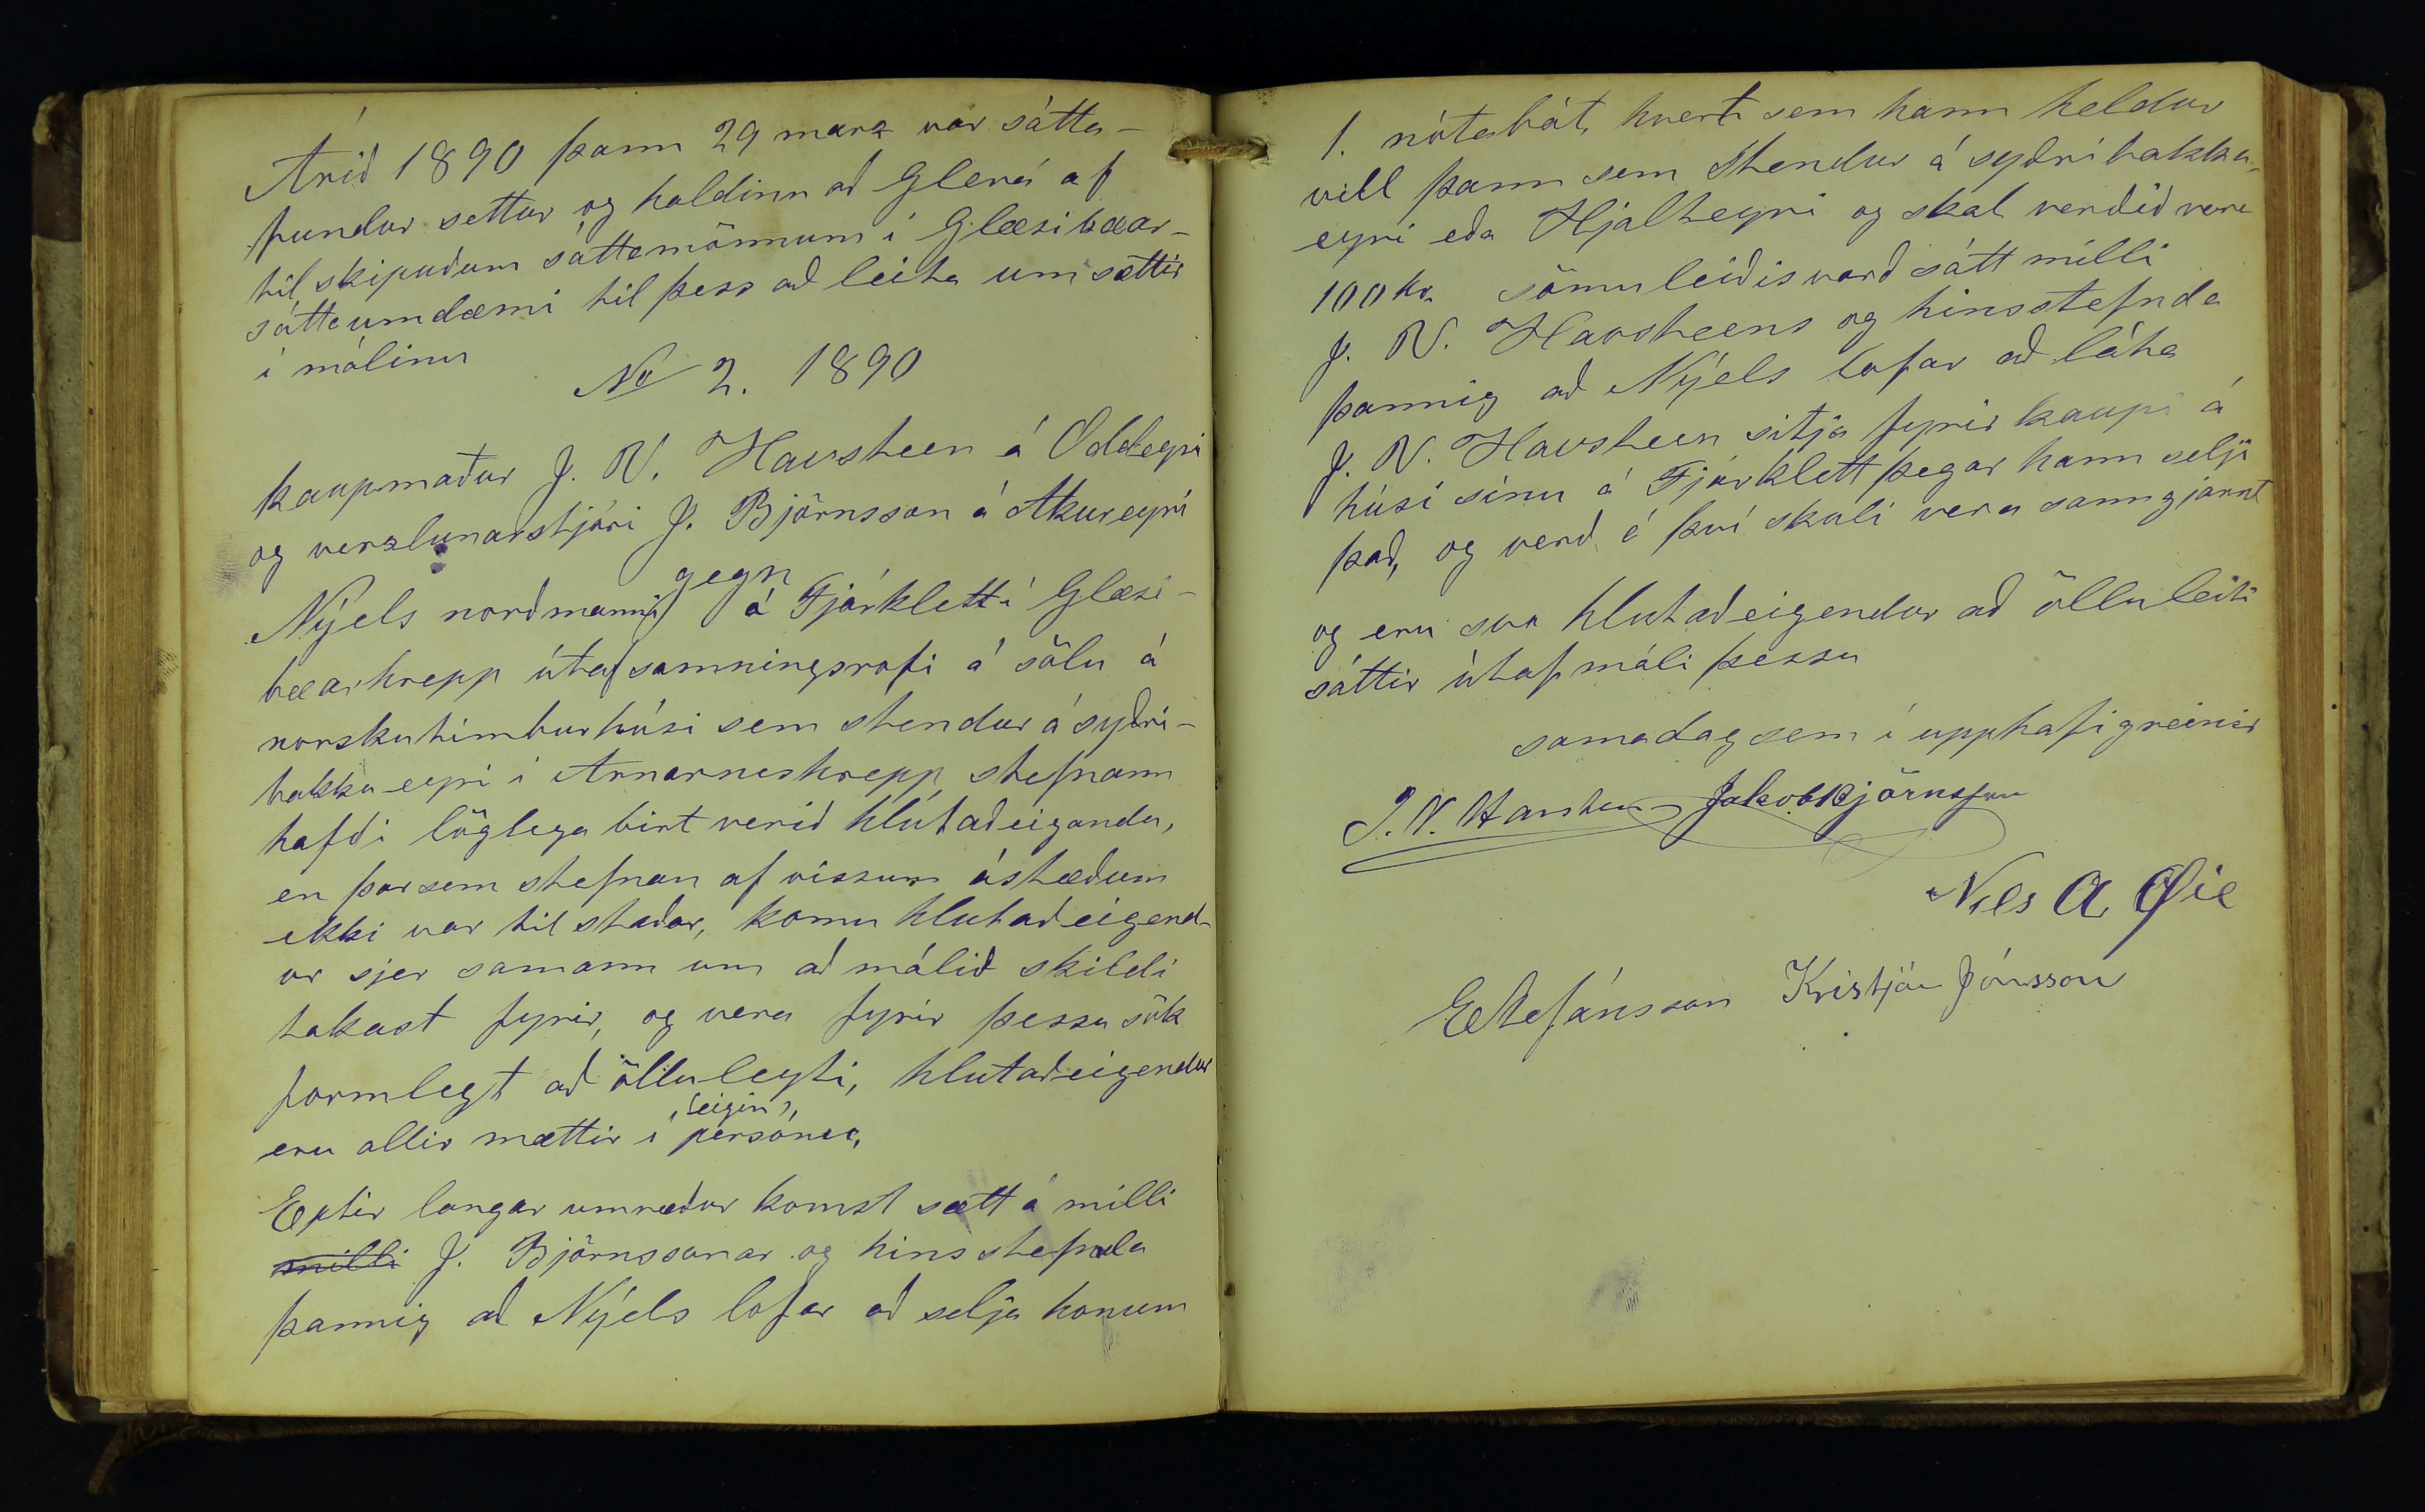 Árið 1890 þann 29 marz var sátta-
fundur settur og haldinn að Glerá af
til skipuðum sáttamönnum í Glæsibæar-
sáttaumdæmi til þess að leita um sættir
í málinu
No 2. 1890
kaupmaður J. V. Havsteen á Oddeyri
og verzlunarstjóri J. Björnsson á Akureyri
gegn
Nýels norðmanni á Fjárklett í Glæsi-
bæarhrepp útaf samningsrofi á sölu á
norskutimburhúsi sem stendur á syðri-
bakkaeyri í Arnarneshrepp, stefnann
hafði löglega birt verið hlutaðeiganda,
en þar sem stefnan af vissum ástæðum
ekki var til staðar, komu hlutaðeigend-
ur sjer samann um að málið skildi
takast fyrir, og vera fyrir þessa sök
formlegt að ölluleyti, hlutaðeigendur
„eigin“,
eru allir mættir í persónu,
Eptir langar umræður komst sætt á milli
milli J. Björnssonar og hins stefnda
þannig að Nýels lofar að selja honum
1. nótabát, hvert sem hann heldur
vill þann sem stendur á syðribakka-
eyri eða Hjalteyri og skal verðið vera
100 kr. sömuleiðis varð sátt milli
J. V. Havsteens og hins stefnda
þannig að Nýels lofar að láta
J. V. Havsteen sitja fyrir kaupi á
húsi sínu á Fjárklett þegar hann selji
það, og verð á því skuli vera sanngjarnt
og eru svo hlutaðeigendur að ölluleiti
sáttir útaf máli þessu
samadag sem í upphafi greinir
J. V. Havsteen Jakob Björnsson
Nils A Øie
EStefánsson Kristján Jónsson